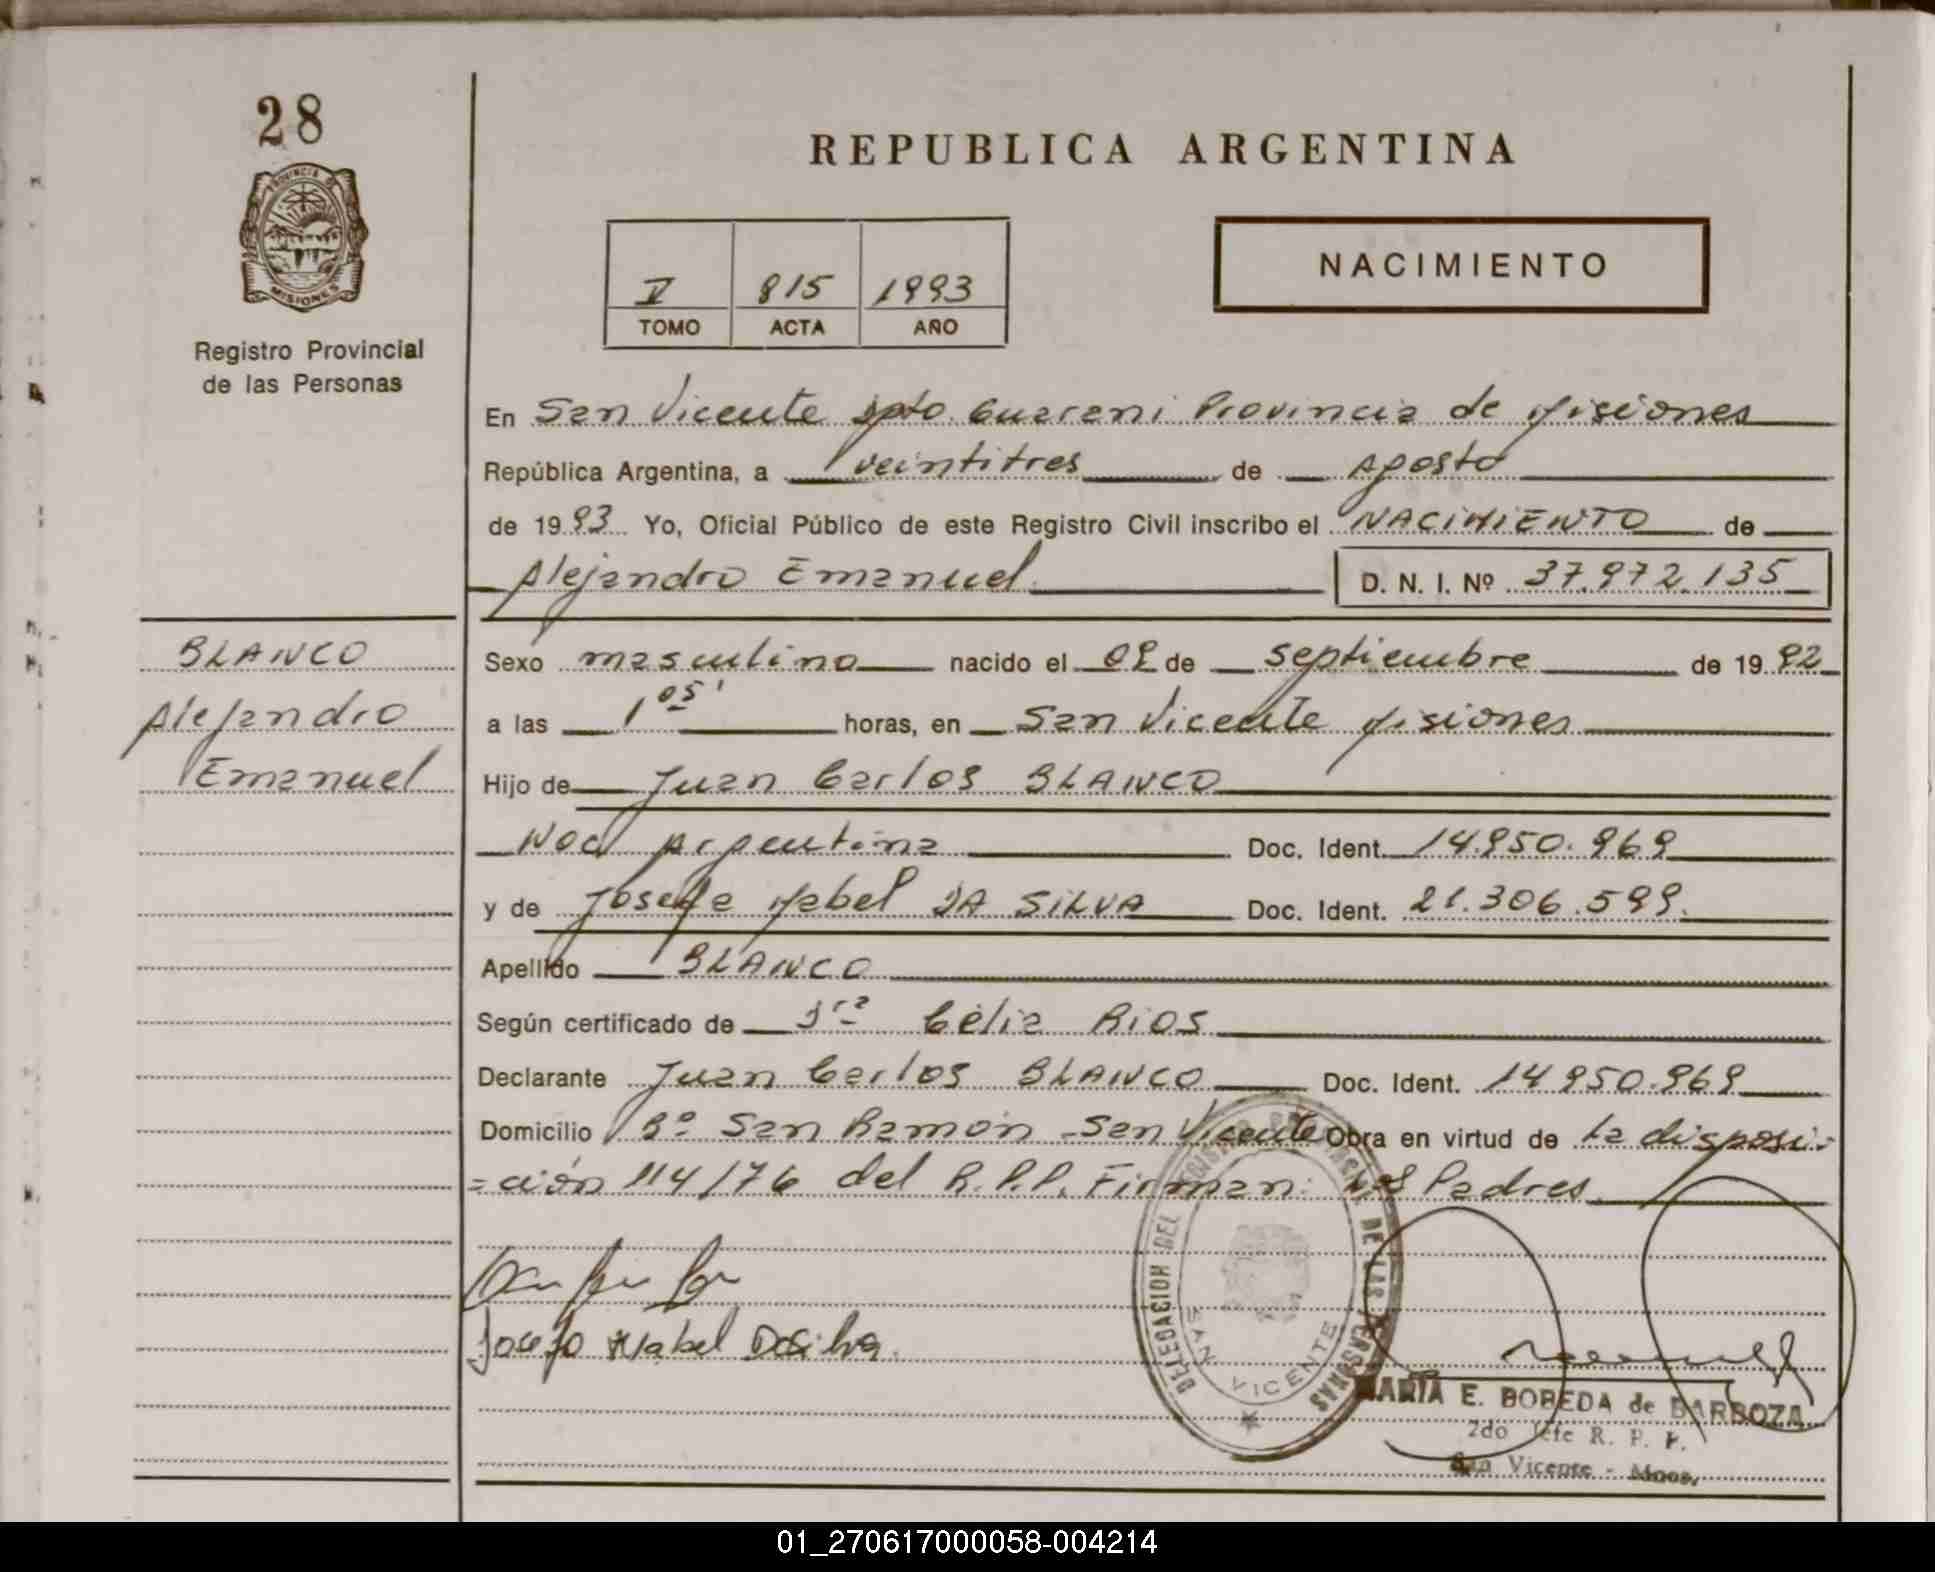 28
PROVINCIA DE
MISIONES
Registro Provincial
de las Personas
REPUBLICA ARGENTINA
V 815 1993
TOMO ACTA AÑO
NACIMIENTO
En San Vicente Dpto. Guarani Provincia de Misiones
República Argentina, a veintitres de Agosto
de 1993 Yo, Oficial Público de este Registro Civil inscribo el NACIMIENTO de
Alejandro Emanuel D. N. I. Nº 37.972.135
BLANCO
Alejandro
Emanuel
Sexo masculino nacido el 09 de septiembre de 1992
a las 1 05' horas, en San Vicente Misiones
Hijo de Juan Carlos BLANCO
Nac Argentina Doc. Ident. 14.950.969
y de Josefa Mabel DA SILVA Doc. Ident. 21.306.599.
Apellido BLANCO
Según certificado de Dra Celia Rios
Declarante Juan Carlos BLANCO Doc. Ident. 14950.969
Domicilio Bº San Ramón - San Vicente Obra en virtud de La disposi-
=ción 114/76 del R.P.P. Firman: Los Padres.
Josefa Mabel Da Silva.
DELEGACION DEL REGISTRO PROVINCIAL DE LAS PERSONAS
SAN VICENTE
MARIA E. BOBEDA de BARBOZA
2do Jefe R. P. P.
San Vicente - Mnes.
01_270617000058-004214